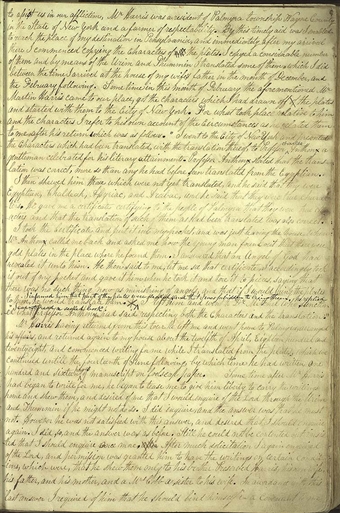 to assist us in our affliction, Mr Harris was a resident of Palmyra township Wayne co
in the State of New York and a farmer of respectability. By this timely aid was I enabled
to reach the place of my destination in Pensylvania, and immediately after my arrival
there I commenced copying the characters of the plates. I copyed a considerable number
of them and by means of the Urim and Thummim I translated some of them which I did
between the time I arrived at the house of my wifes father in the month of December, and
the February following. Some time in this month of February the aforementioned Mr
Martin Harris came to our place, got the characters which I had drawn off the plates
and started with them to the City of New York. For what took place relative to him
and the characters I refer to his own account of the circumstances as he related them
to me after his return which was as follows. "I went to the City of New York and presented
the characters which had been translated, with the translation thereof to Professor Anthon a
gentleman celebrated for his literary attainments. Professor Anthon stated that the trans
lation was correct, more so than any he had before seen translated from the Egyptian.
I then shewed him those which were not yet translated, and he said that they were
Egyptian, Chaldeak, Assyriac, and
He gave me a certificate
and that the translation of such of them as had been translated was also correct.
I took the certificate and put it into my pocket, and was just leaving the house, when
Mr Anthon called me back and asked me how the young man found out that there were
gold plates in the place where he found them. I answered that an Angel of God had
revealed it unto him. He then said to me, let me see that certificate, I accordingly took
it out of my pocket and gave it to him when he took it and tore it to pieces, saying that
there was no such thing now as ministring of angels, and that if I would bring the plates
I informed him that part of the plates were sealed, and that I was forbidden to bring them, he replied
to him, he would translate them.
"I cannot read a sealed book".
said respecting both the Characters and the translation.
Mr Harris having returned from this tour he left me and went home to Palmyra,
his affairs, and returned again to my house about the twelfth of April, Eighteen hundred and
twenty eight, and commenced writing for me while I translated from the plates, which we
continued untill the fourteenth of June following, by which time he had written one
hundred and sixteen pages of manuscript on foolscap paper. Some time after Mr Harris
had began to write for me he began to tease me to give him liberty to carry the writings
home and shew them, and desired of me that I would enquire of the Lord through the Urim
and Thummim if he might not do so. I did enquire, and the answer was that he must
not. However he was not satisfied with this answer, and desired that I should enquire
again. I did so, and the answer was as before. Still he could not be contented but insis
ted that I should enquire once more. After much solicitation I again enquired
of the Lord, and permission was granted him to have the writings on certain condi
tions, which were, that he shew them only to his brother. Preserved Harris, his own wife,
his father, and his mother, and a Mrs Cobb a sister to his wife. In accordance with this
last answer I required of him that he should bind himself in a covenant